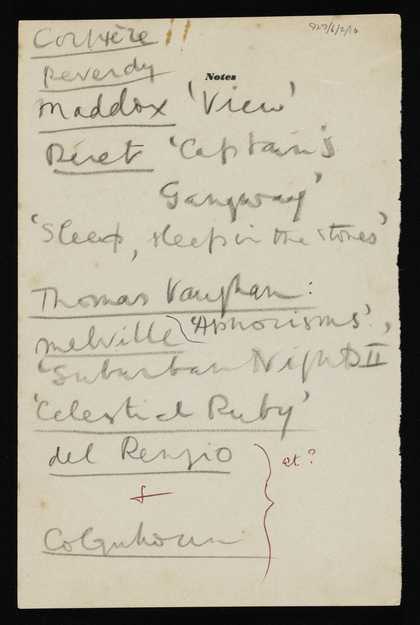 Corbière !!
929/6/2/10
Reverdy
Notes
Maddox 'View'
Péret 'Captain's
Gangway'
'Sleep, sleep in the stones'
Thomas Vaughan:
Melville 'Aphorisms',
'Suburban Nights II
'Celestial Ruby'
del Renzio
+
Colquhoun
et ?